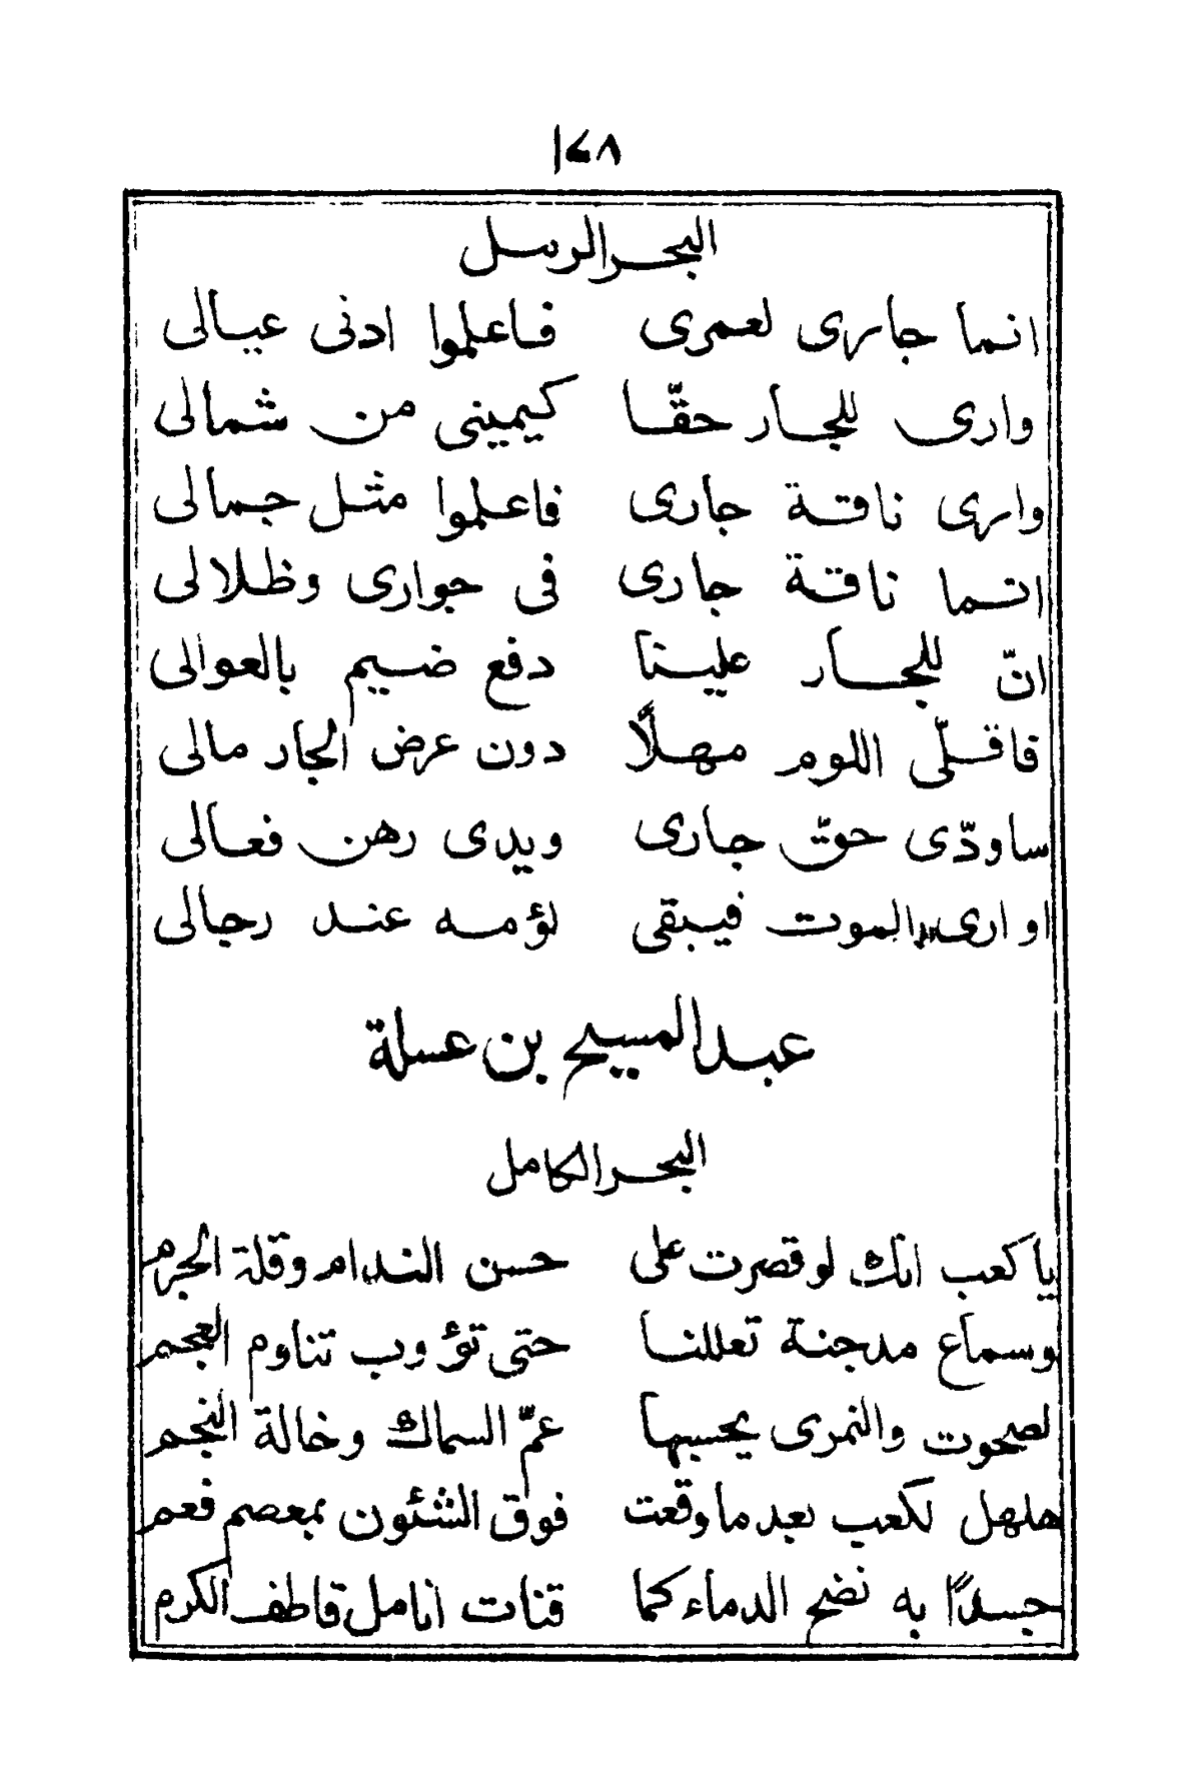 ١٤٨
البحر الرسل
انما جارى لعمرى فاعلموا ادنى عيالى
وارى للجار حقّا كيمينى من شمالى
وارى ناقة جارى فاعلموا مثل جمالى
انما ناقة جارى فى جوارى وظلالى
انّ للجار علينا دفع ضيم بالعوالى
فاقلّى اللوم مهلًا دون عرض الجار مالى
ساودّى حقّ جارى ويدى رهن فعالى
او ارى الموت فيبقى لؤمه عند رجالى
عبد المسيح بن عسلة
البحر الكامل
يا كعب انك لو قصرت على حسن الندام وقلة الجرم
وسماع مدجنة تعللنا حتى نؤوب تناوم العجم
لصحوت والنمرى يحسبها عمّ السماك وخالة النجم
هلهل لكعب بعد ما وقعت فوق الشئون بمعصم فعم
جسدًا به نضح الدماء كما قنات انامل قاطف الكرم